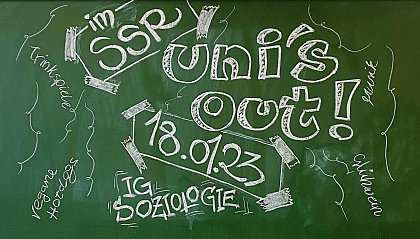 im
SSR
uni's
out!
18.01.23
IG
SOZIOLOGIE
Trinkspiele
vegane
Hotdogs
punsch
Glühwein